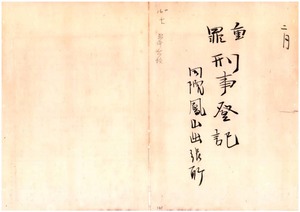 二月
重罪刑事登記
同院鳳山出張所